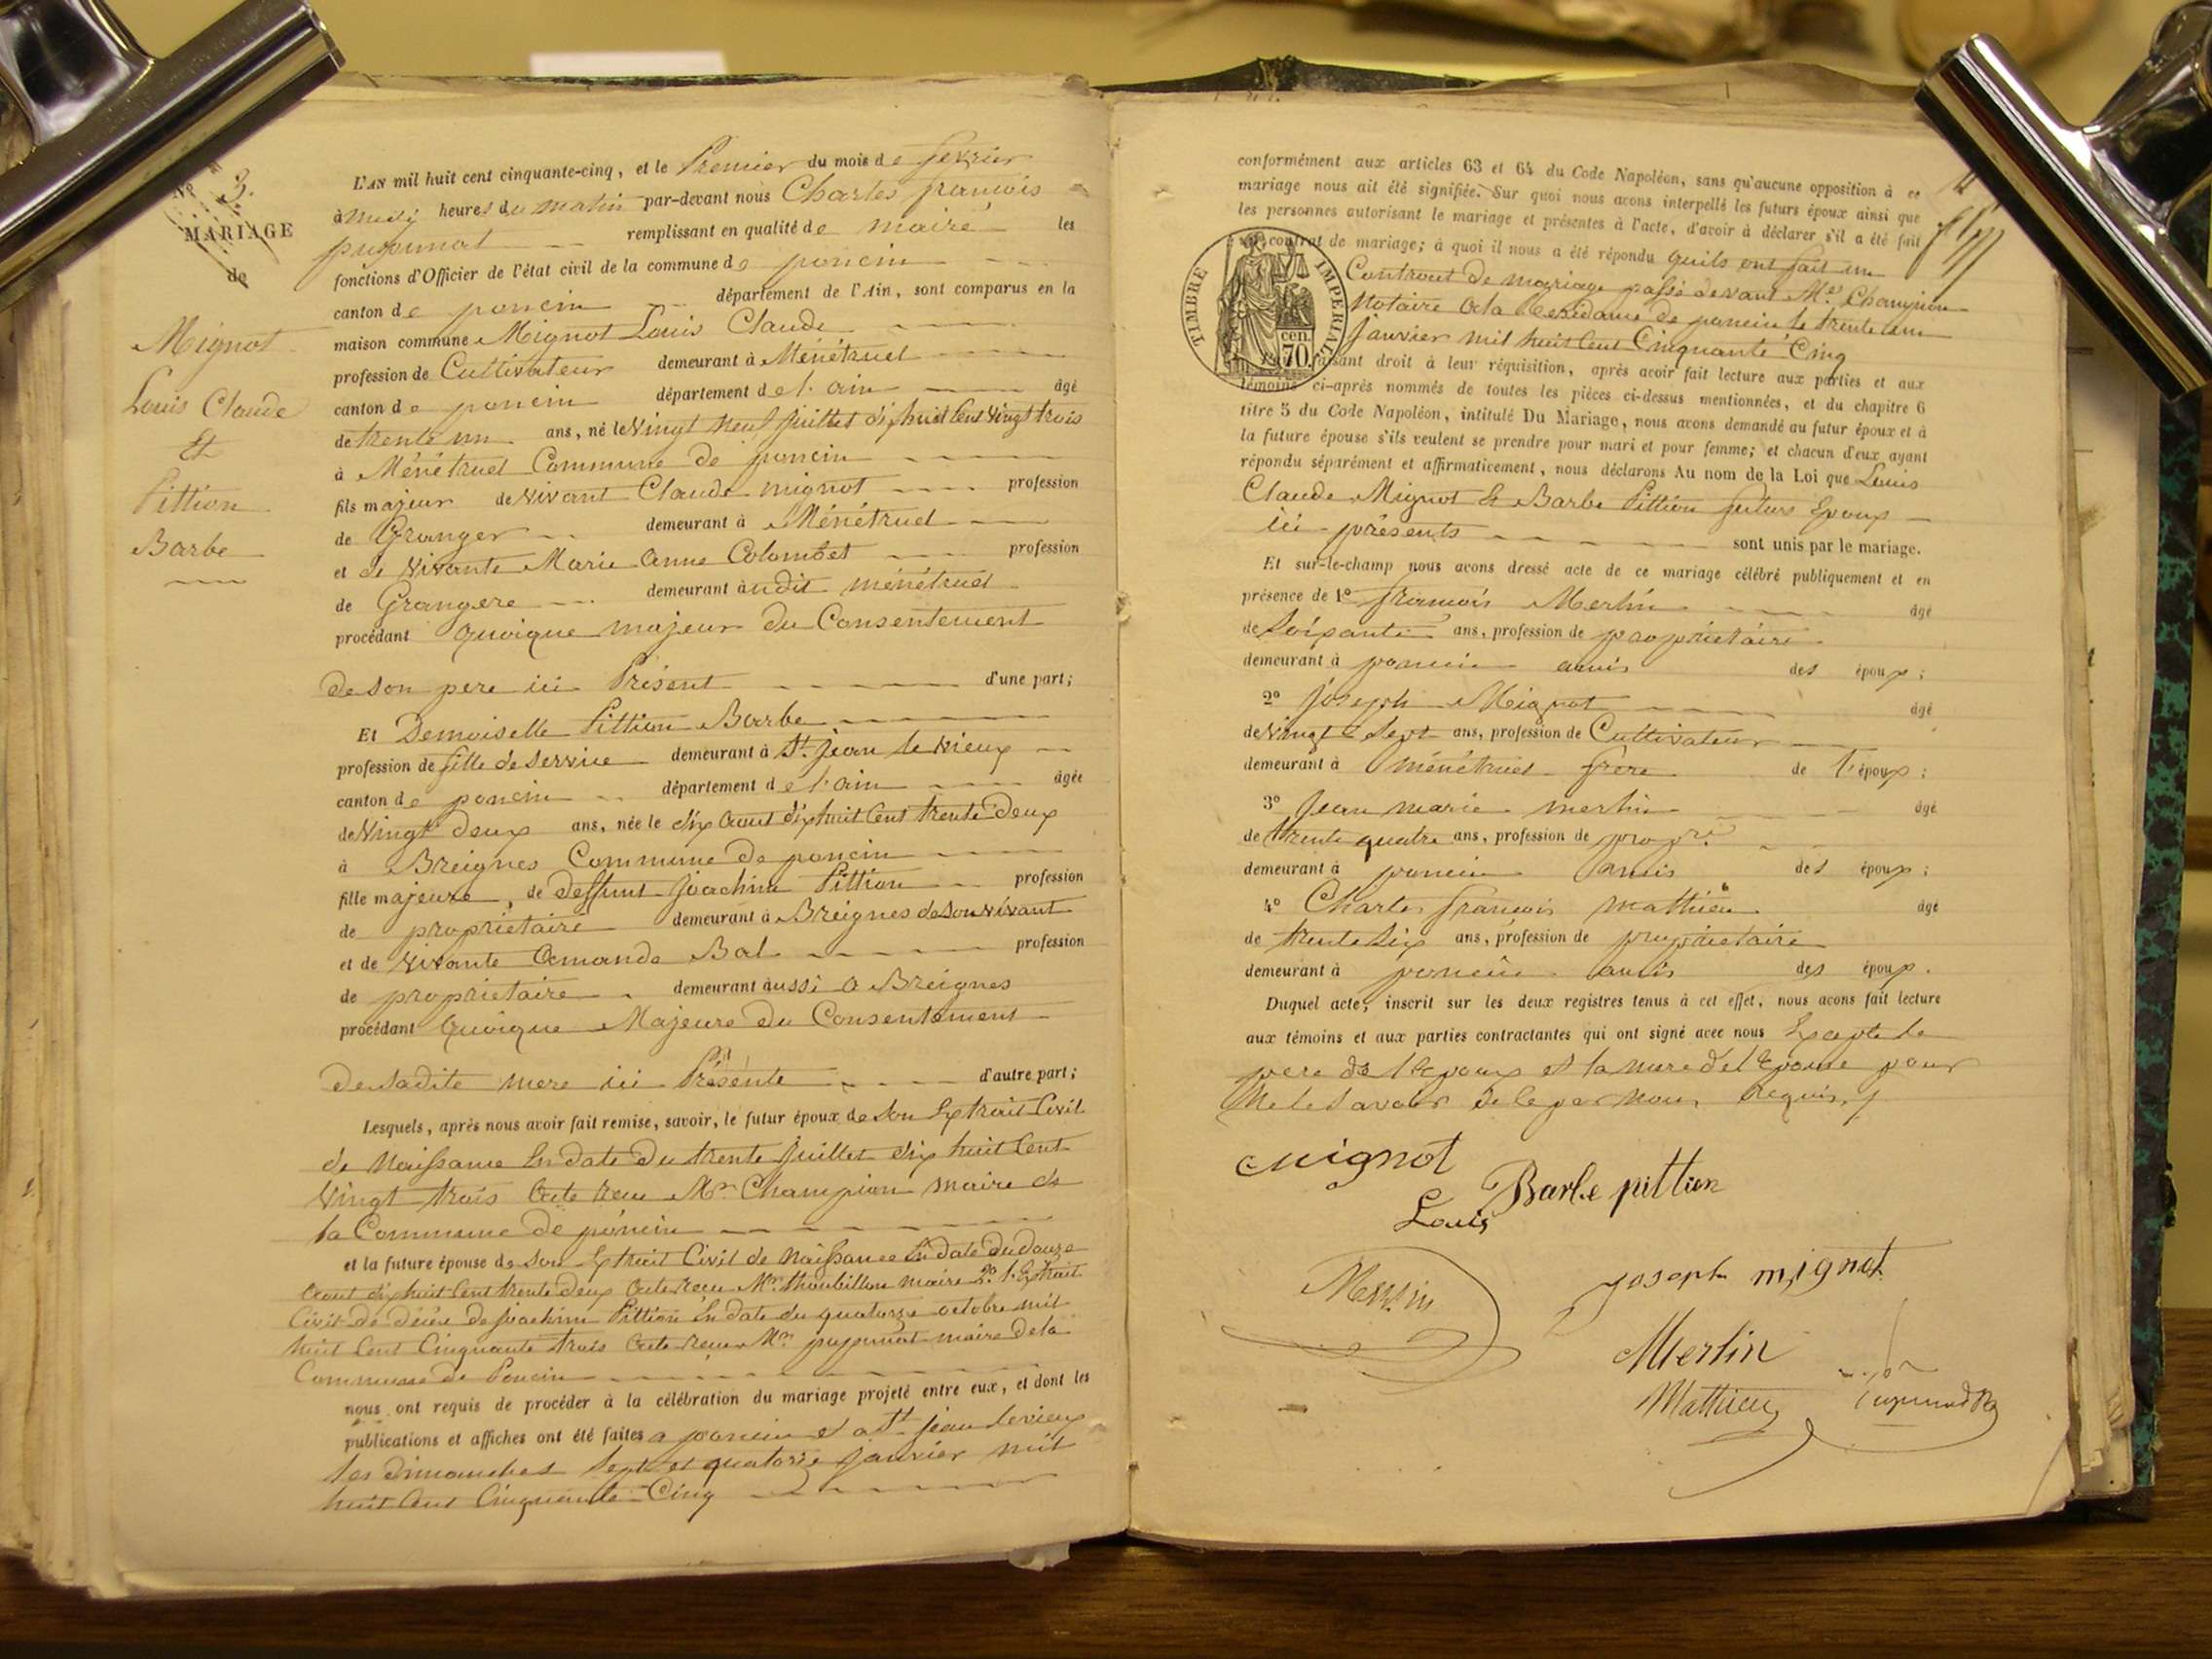 N° 3.
MARIAGE
de
Mignot
Louis Claude
Et
Pittion
Barbe
L'AN mil huit cent cinquante-cinq, et le Premier du mois de fevrier
à midi heures du matin par-devant nous Charles françois
pupunat remplissant en qualité de maire les
fonctions d'Officier de l'état civil de la commune de poncin
canton de poncin département de l'Ain, sont comparus en la
maison commune Mignot Louis Claude
profession de Cultivateur demeurant à Ménétruel
canton de poncin département de l'ain âgé
de trente un ans, né le Vingt neuf juillet dix huit Cent Vingt trois
à Ménétruel Commune de poncin
fils majeur de vivant Claude mignot profession
de Granger demeurant à Ménétruel
et de Vivante Marie Anne Colombet profession
de Grangere demeurant àudit ménétruel
procédant quoique majeur du Consentement
de son pere ici Présent d'une part;
Et Demoiselle Pittion Barbe
profession de fille de Service demeurant à St. jean le Vieux
canton de poncin département de l'ain âgée
de Vingt deux ans, née le dix Aout dix huit Cent trente Deux
à Breignes Commune de poncin
fille majeure, de deffunt joachim Pittion profession
de proprietaire demeurant à Breignes de son vivant
et de Vivante Amande Bal profession
de proprietaire demeurant àussi a Breignes
procédant quoique Majeure du Consentement
de sadite mere ici Présente d'autre part;
Lesquels, après nous avoir fait remise, savoir, le futur époux de son Extrait Civil
de Naissance En date du trente juillet dix huit Cent
Vingt trois Acte reçu Mr. Champion maire de
la Commune de poncin
et la future épouse de son Extrait Civil de Naissance En date du douze
Aout dix huit Cent trente deux Acte recu Mr. maire 2° l'Extrait
Civil de décès de joachim Pittion En date du quatorze octobre mil
huit Cent Cinquante trois Acte recu Mr. pupunat maire de la
Commune de Poncin
nous ont requis de procéder à la célébration du mariage projeté entre eux, et dont les
publications et affiches ont été faites a poncin et a St. jean le vieux
les dimanches Sept et quatorze janvier mil
huit Cent Cinquante-Cinq
conformément aux articles 63 et 64 du Code Napoléon, sans qu'aucune opposition à ce
mariage nous ait été signifiée. Sur quoi nous avons interpellé les futurs époux ainsi que
les personnes autorisant le mariage et présentes à l'acte, d'avoir à déclarer s'il a été fait
un contrat de mariage; à quoi il nous a été répondu quils ont fait un
Contract de mariage passé devant Me. Champion
Notaire A la Residance de poncin le trente un
janvier mil huit Cent Cinquante Cinq
TIMBRE IMPERIAL
70 cen.
faisant droit à leur réquisition, après avoir fait lecture aux parties et aux
témoins ci-après nommés de toutes les pièces ci-dessus mentionnées, et du chapitre 6
titre 5 du Code Napoléon, intitulé Du Mariage, nous avons demandé au futur époux et à
la future épouse s'ils veulent se prendre pour mari et pour femme; et chacun d'eux ayant
répondu séparément et affirmativement, nous déclarons Au nom de la Loi que Louis
Claude Mignot Et Barbe Pittion futurs Epoux
ici présents sont unis par le mariage.
Et sur-le-champ nous avons dressé acte de ce mariage célébré publiquement et en
présence de 1° françois Merlin âgé
de Soixante ans, profession de proprietaire
demeurant à poncin amis des époux;
2° joseph Mignot âgé
de Vingt Sept ans, profession de Cultivateur
demeurant à ménétruel frère de l'époux;
3° Jean marie merlin âgé
de trente quatre ans, profession de propre
demeurant à poncin amis des époux;
4° Charles françois Mathieu âgé
de trente Six ans, profession de proprietaire
demeurant à poncin amis des époux.
Duquel acte, inscrit sur les deux registres tenus à cet effet, nous avons fait lecture
aux témoins et aux parties contractantes qui ont signé avec nous Excepté le
pere de l'Epoux et la mere de l'Epouse pour
Ne le Savoir de ce par Nous Requis
Mignot
Louis
Barbe pittion
Merlin
joseph mignot
Merlin
Mathieu